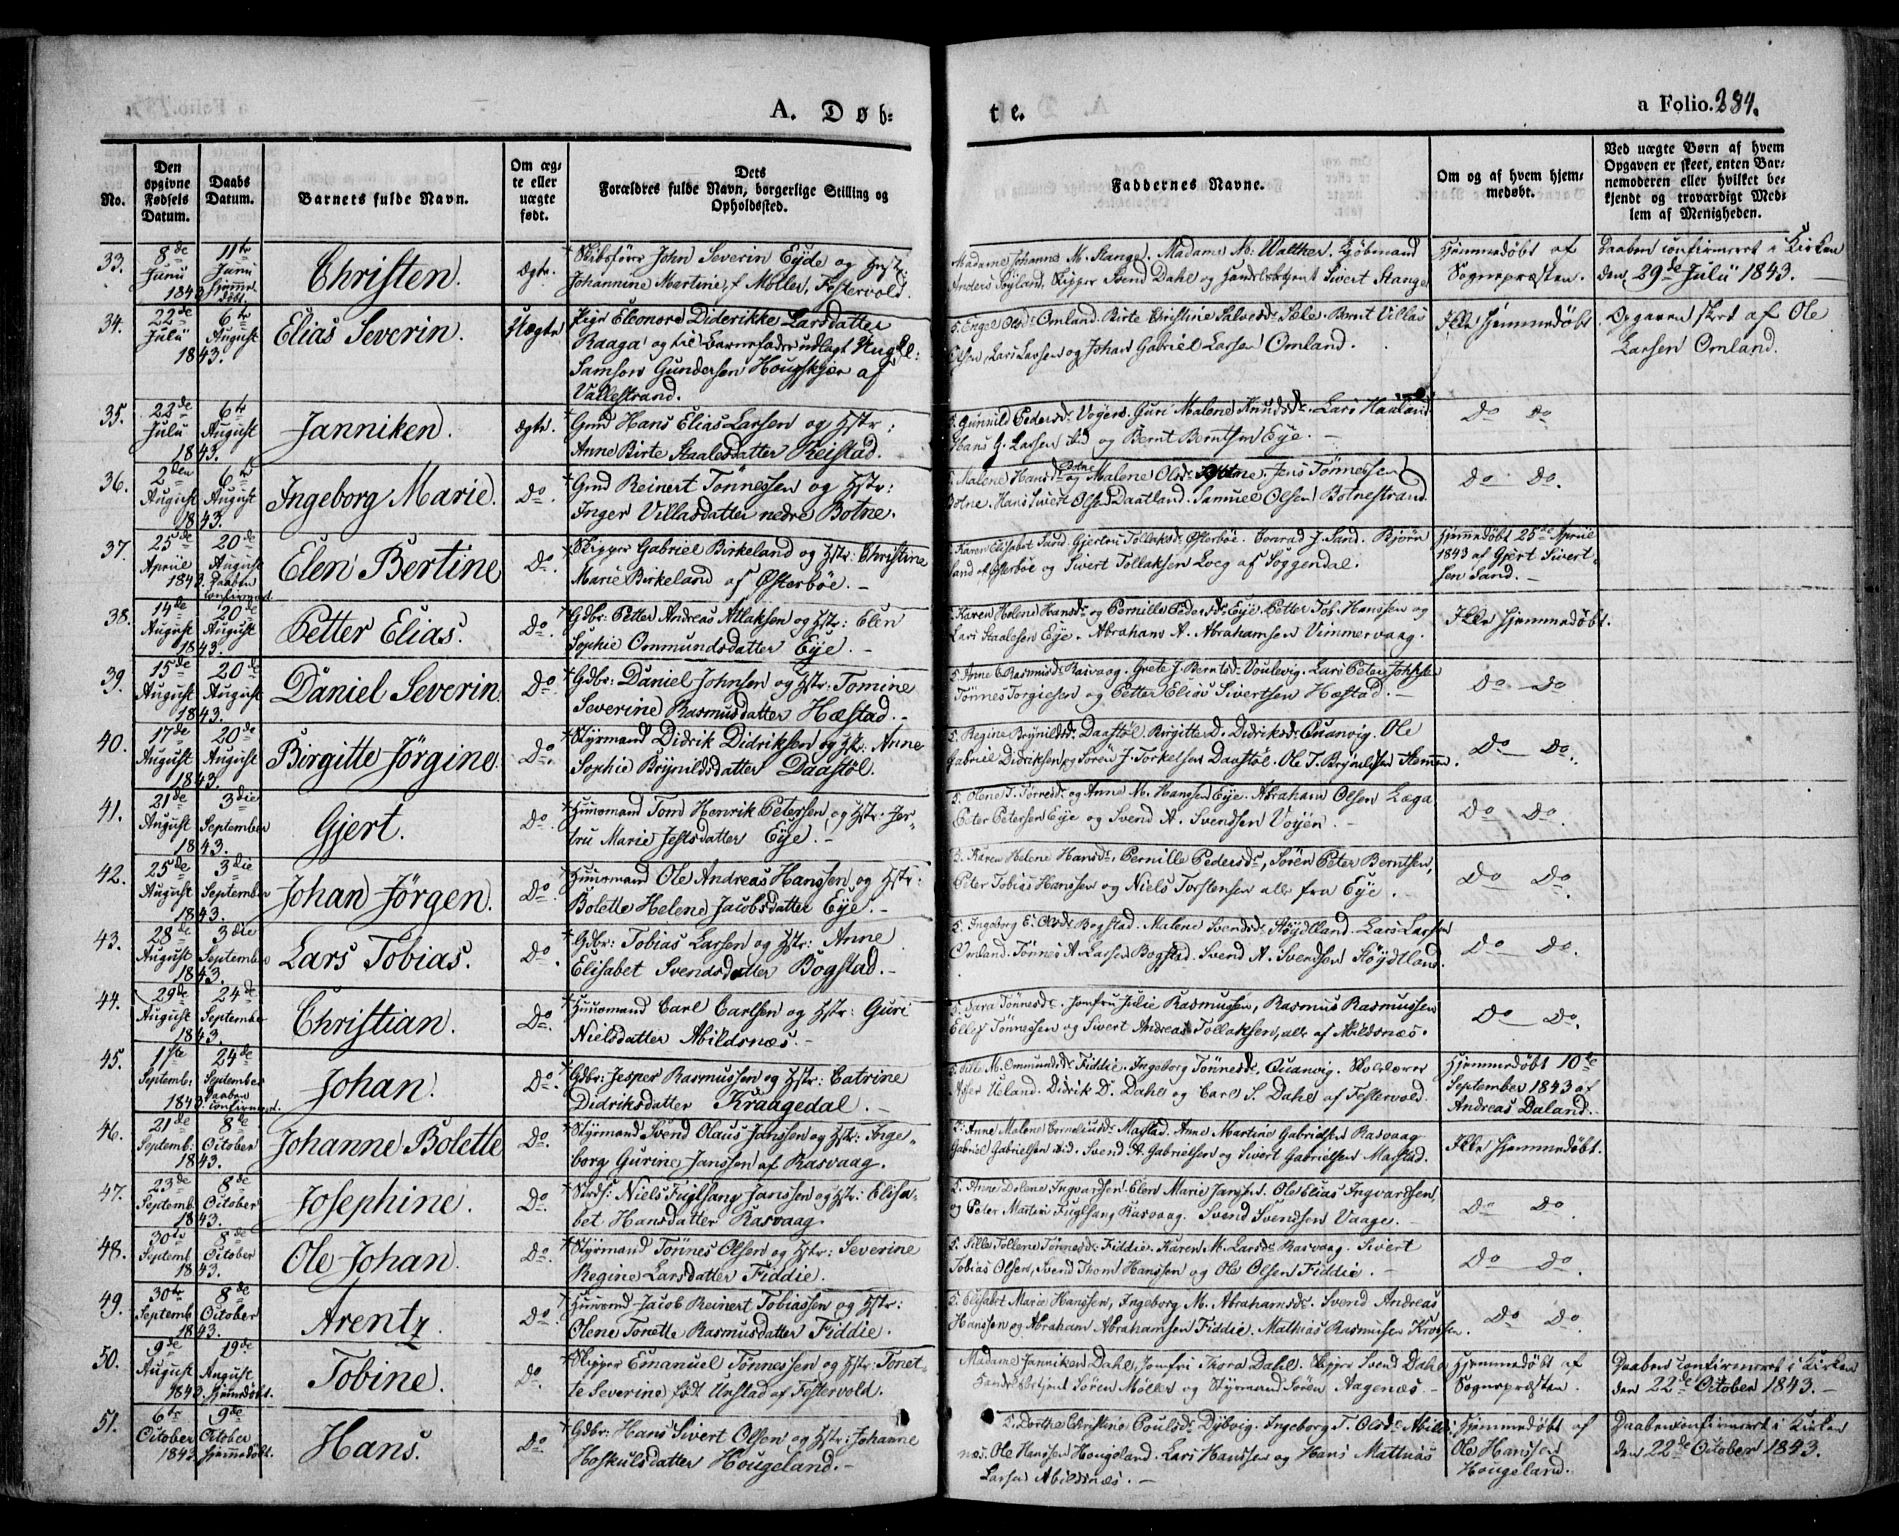 A. Døb-
te.
a Folio. 284.
No.
Den opgivne Fødsels Datum.
Daabs Datum.
Barnets fulde Navn.
Om ægte eller uægte født.
Dets Forældres fulde Navn, borgerlige Stilling og Opholdssted.
Faddernes Navne.
Om og af hvem hjemmedøbt.
Ved uægte Børn af hvem Opgaven er skeet, enten Barnemoderen eller hvilket bekjendt og troværdigt Medlem af Menigheden.
33.
8de Juni 1843
11te Juni
Christen.
Ægte.
Skibsfører John Severin Eyde og Hstr:
Johannine Martine f. Møller, Festervold.
Madame Johanne M. Stange. Madame M. Walther. Kjøbmand
Anders Røyland, Skipper Svend Dahl og Handelsbetjent Sivert Stange
Hjemmedøbt af
Sognepræsten.
Daaben confirmeret i Kirken
den 29de Julii 1843.
34.
22de Julii 1843.
6te August
Elias Severin.
Uægte
Pige Eleonore Diderikke Larsdatter
Raaga og til Barnefader udlagt Ungkl:
Samson Gundersen Hougskjær af
Vallestrand.
Engel Olsd: Omland. Birte Christine Salvesd:
Lars Larsen og Johan Gabriel Larsen Omland.
Ikke Hjemmedøbt
Opgaven skeet af Ole
Larsen Omland.
35.
22de Julii 1843.
6te August
Janniken.
Ægte.
Gmd Hans Elias Larsen og Hstr:
Anne Birte Staalesdatter Reistad.
Gunnild Pedersd: Vogen. Guri Malene Knudsd: Lars Haaland
Hans G. Larsen ibid og Bernt Berntsen Eye.
Do Do
36.
2den August 1843.
6te August
Ingeborg Marie.
Do
Gmd Reinert Tönnessen og Hstr:
Inger Villasdatter nedre Botne.
Malene Hansd: Botne og Malene Olsd: Jens Tönnessen
Botne. Hans Sivert Olsen Daatland. Samuel Olsen Botnestrand.
Do Do.
37.
25de Aprile 1843.
20de August Daaben confirmeret.
Elen Bertine
Do.
Skipper Gabriel Birkeland og Hstr: Christine
Marie Birkeland af Østerbøe.
Karen Elisabet Sand. Gjertru Tollaksd: Østerbøe. Conrad J. Sand.
land af Østerbøe og Sivert Tollaksen Loeg af Soggendal.
Hjemmedøbt 25de Aprile
1843 af Gjert Sivert-
sen Sand.
38.
14de August 1843.
20de August
Petter Elias.
Do.
Gdbr: Petter Andreas Atlaksen og Hstr: Elen
Sophie Ommundsdatter Eye.
Karen Helene Hansd: og Pernille Pedersd: Eye. Petter Tob. Hanssen og
Lars Staalesen Eye. Abraham A. Abrahamsen Vimmervaag.
Ikke Hjemmedøbt.
39.
15de August 1843.
20de August
Daniel Severin
Do
Gdbr: Daniel Johnsen og Hstr: Tomine
Severine Rasmusdatter Hæstad.
Anne E. Rasmusd: Rasvaag. Grete J. Berntsd:
Tönnes Torgiesen og Petter Elias Sivertsen Hæstad.
Do Do
40.
17de August 1843.
20de August
Birgitte Jörgine.
Do
Styrmand Didrik Didriksen og Hstr: Anne
Sophie Brynildsdatter Daastöl.
Regine Brynildsd: Daastöl. Birgitte D. Didriksd: Quanvig. Ole
Gabriel Didriksen og Sören J. Torkelsen Daastöl. Ole T. Brynildsen
Do Do.
41.
21de August 1843.
3die September
Gjert.
Do
Huusmand Tom Henrik Petersen og Hstr: Jer-
tru Marie Jestsdatter Eye.
Olene T. Torresd: og Anne M. Hanssen Eye. Abraham Olsen Læga
Peter Petersen Eye og Svend A. Svendsen Vogen.
Do Do.
42.
25de August 1843.
3die September
Johan Jörgen.
Do
Huusmand Ole Andreas Hanssen og Hstr:
Bolette Helene Jacobsdatter Eye.
Karen Helene Hansd: Pernille Pedersd: Sören Peter Berntsen,
Peter Tobias Hanssen og Niels Torstensen alle fra Eye.
Do Do.
43.
28de August 1843.
3die September
Lars Tobias.
Do
Gdbr: Tobias Larsen og Hstr: Anne
Elisabet Svendsdatter Bogstad.
Ingeborg E. Olsd: Bogstad. Malene Svendsd: Höydtland. Lars Larsen
Omland. Tönnes A. Larsen Bogstad. Svend A. Svendsen Höydtland.
Do Do.
44.
29de August 1843.
24de September
Christian.
Do
Huusmand Carl Carlsen og Hstr: Guri
Nielsdatter Abildsnæs.
Sara Tönnesd: Jomfru Julie Rasmussen, Rasmus Rasmussen
Ellef Tönnessen og Sivert Andreas Tollaksen, alle af Abildsnæs.
Do Do.
45.
1ste Septemb: 1843.
24de September Daaben confirmeret.
Johan.
Do
Gdbr: Jesper Rasmussen og Hstr: Catrine
Didriksdatter Kraagedal.
M. Ommundsd: Fiddie. Ingeborg Tönnesd: Quanvig. Skolelærer
Asser Ueland. Didrik D. Dahl og Carl S. Dahl af Festervold.
Hjemmedøbt 10de
September 1843 af
Andreas Daland.
46.
21de Septemb: 1843.
8de October
Johanne Bolette
Do
Styrmand Svend Olaus Janssen og Hstr: Inge-
borg Gurine Janssen af Rasvaag.
Anne Malene Corneliusd: Magstad. Anne Martine Gabrielsen Rasvaag
Gabriel Gabrielsen ibid. Svend A. Gabrielsen og Sivert Gabrielsen Magstad.
Ikke Hjemmedøbt.
47.
23de Septemb. 1843.
8de October
Josephine.
Do
Niels Fuglsang Janssen og Hstr: Elisa-
bet Hansdatter Rasvaag.
Anne Dolene Ingvardsen. Elen Marie Janssen. Ole Elias Ingvardsen
og Peter Martin Fuglsang Rasvaag. Svend Svendsen Vaage.
Do Do.
48.
30te Septemb. 1843.
8de October
Ole Johan.
Do
Styrmand Tönnes Olsen og Hstr: Severine
Regine Larsdatter Fiddie.
Sille Tollene Tönnesd: Fiddie. Karen M. Larsd: Rasvaag. Sivert
Tobias Olsen, Svend Thom Hanssen og Ole Olsen Fiddie.
Do Do.
49.
30te Septemb. 1843.
8de October
Arentz.
Do
Huusmd Jacob Reinert Tobiassen og Hstr:
Olene Tonette Rasmusdatter Fiddie.
Elisabet Marie Hanssen, Ingeborg M. Abrahamsd: Svend Andreas
Hanssen og Abraham Abrahamsen Fiddie. Mathias Rasmussen
Do Do.
50.
9de August 1843.
19de August Hjemmedøbt.
Tobine.
Do
Skipper Emanuel Tönnessen og Hstr: Tonet-
te Severine født Unstad af Festervold.
Madame Janniken Dahl, Jomfru Thora Dahl. Skipper Svend Dahl
Handelsbetjent Sören Möller og Styrmand Sören Aagenæs.
Hjemmedøbt af
Sognepræsten.
Daaben confirmeret i Kirken
den 22de October 1843.
51.
6te October 1843.
9de October Hjemmedøbt.
Hans.
Do
Gdbr: Hans Sivert Olsen og Hstr: Johanne
Hoskulsdatter Hougeland.
Dorthe Christine Poulsd: Dybvig. Ingeborg T. Olsd: Abilds-
næs. Ole Hanssen Hougeland. Lars Hanssen og Hans Mathias
Larsen Abildsnæs.
Hjemmedøbt af
Ole Hanssen
Hougeland.
Daaben confirmeret i Kirken
den 22de October 1843.